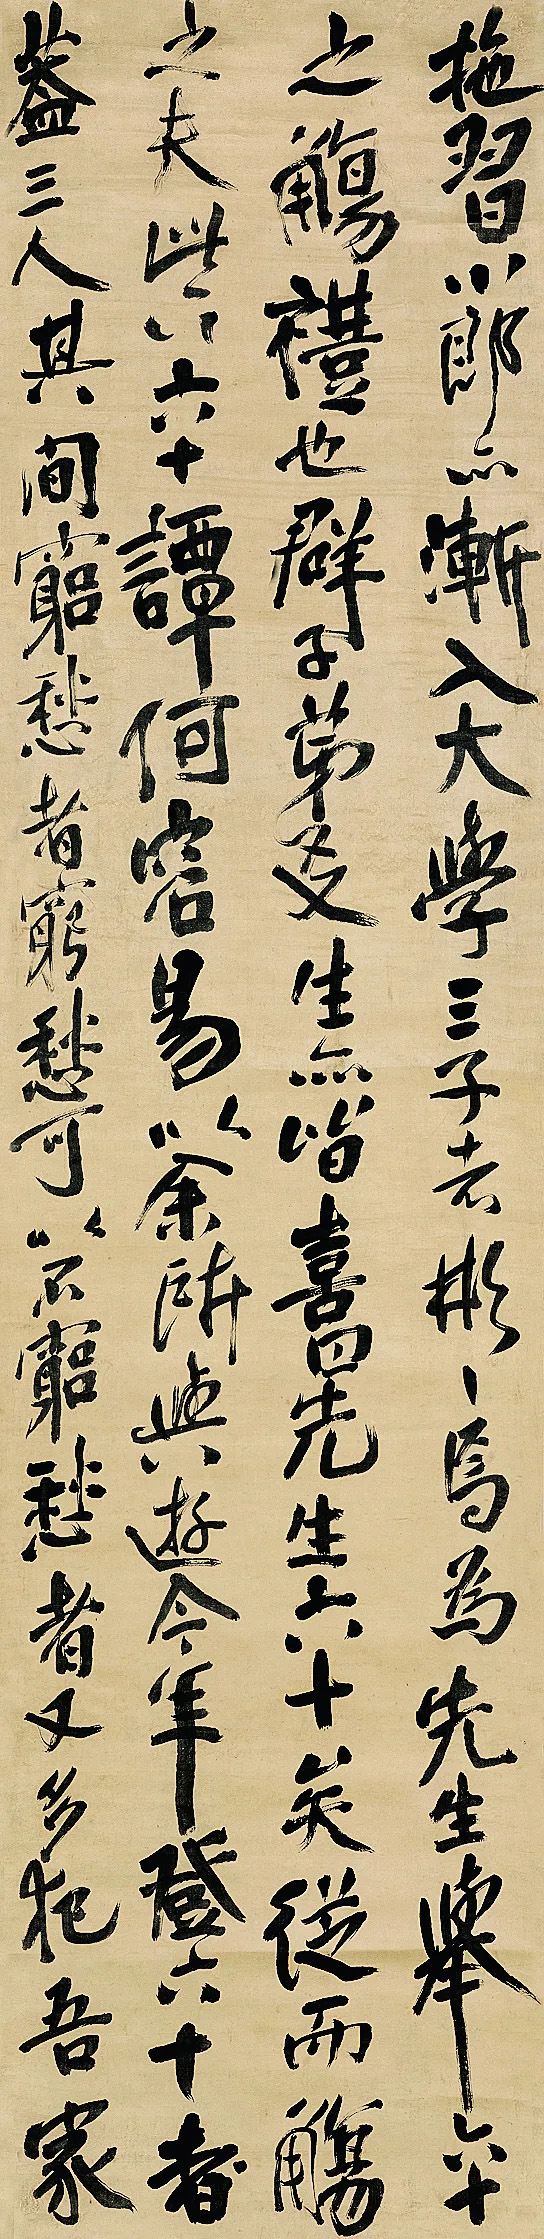 拖習小郎亦漸入大學三子者彬丶焉為先生舉六十
之觴禮也群子弟友生亦皆喜曰先生六十矣從而觴
之夫此六十譚何容易以余所與遊今年登六十者
蓋三人其間窮愁者窮愁可以不窮愁者又多犯吾家